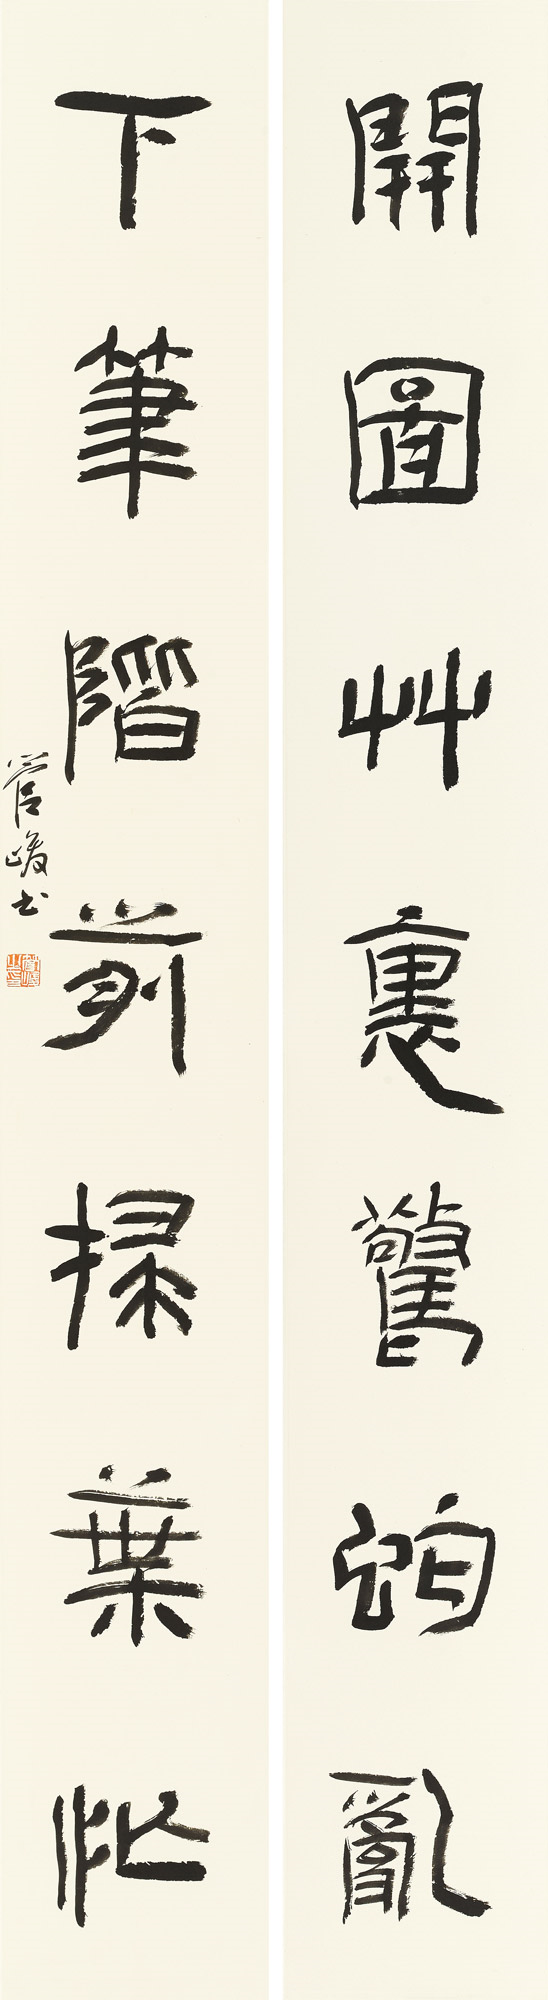 開圖艸裏驚蛇亂
下筆階前掃葉忙
管峻书